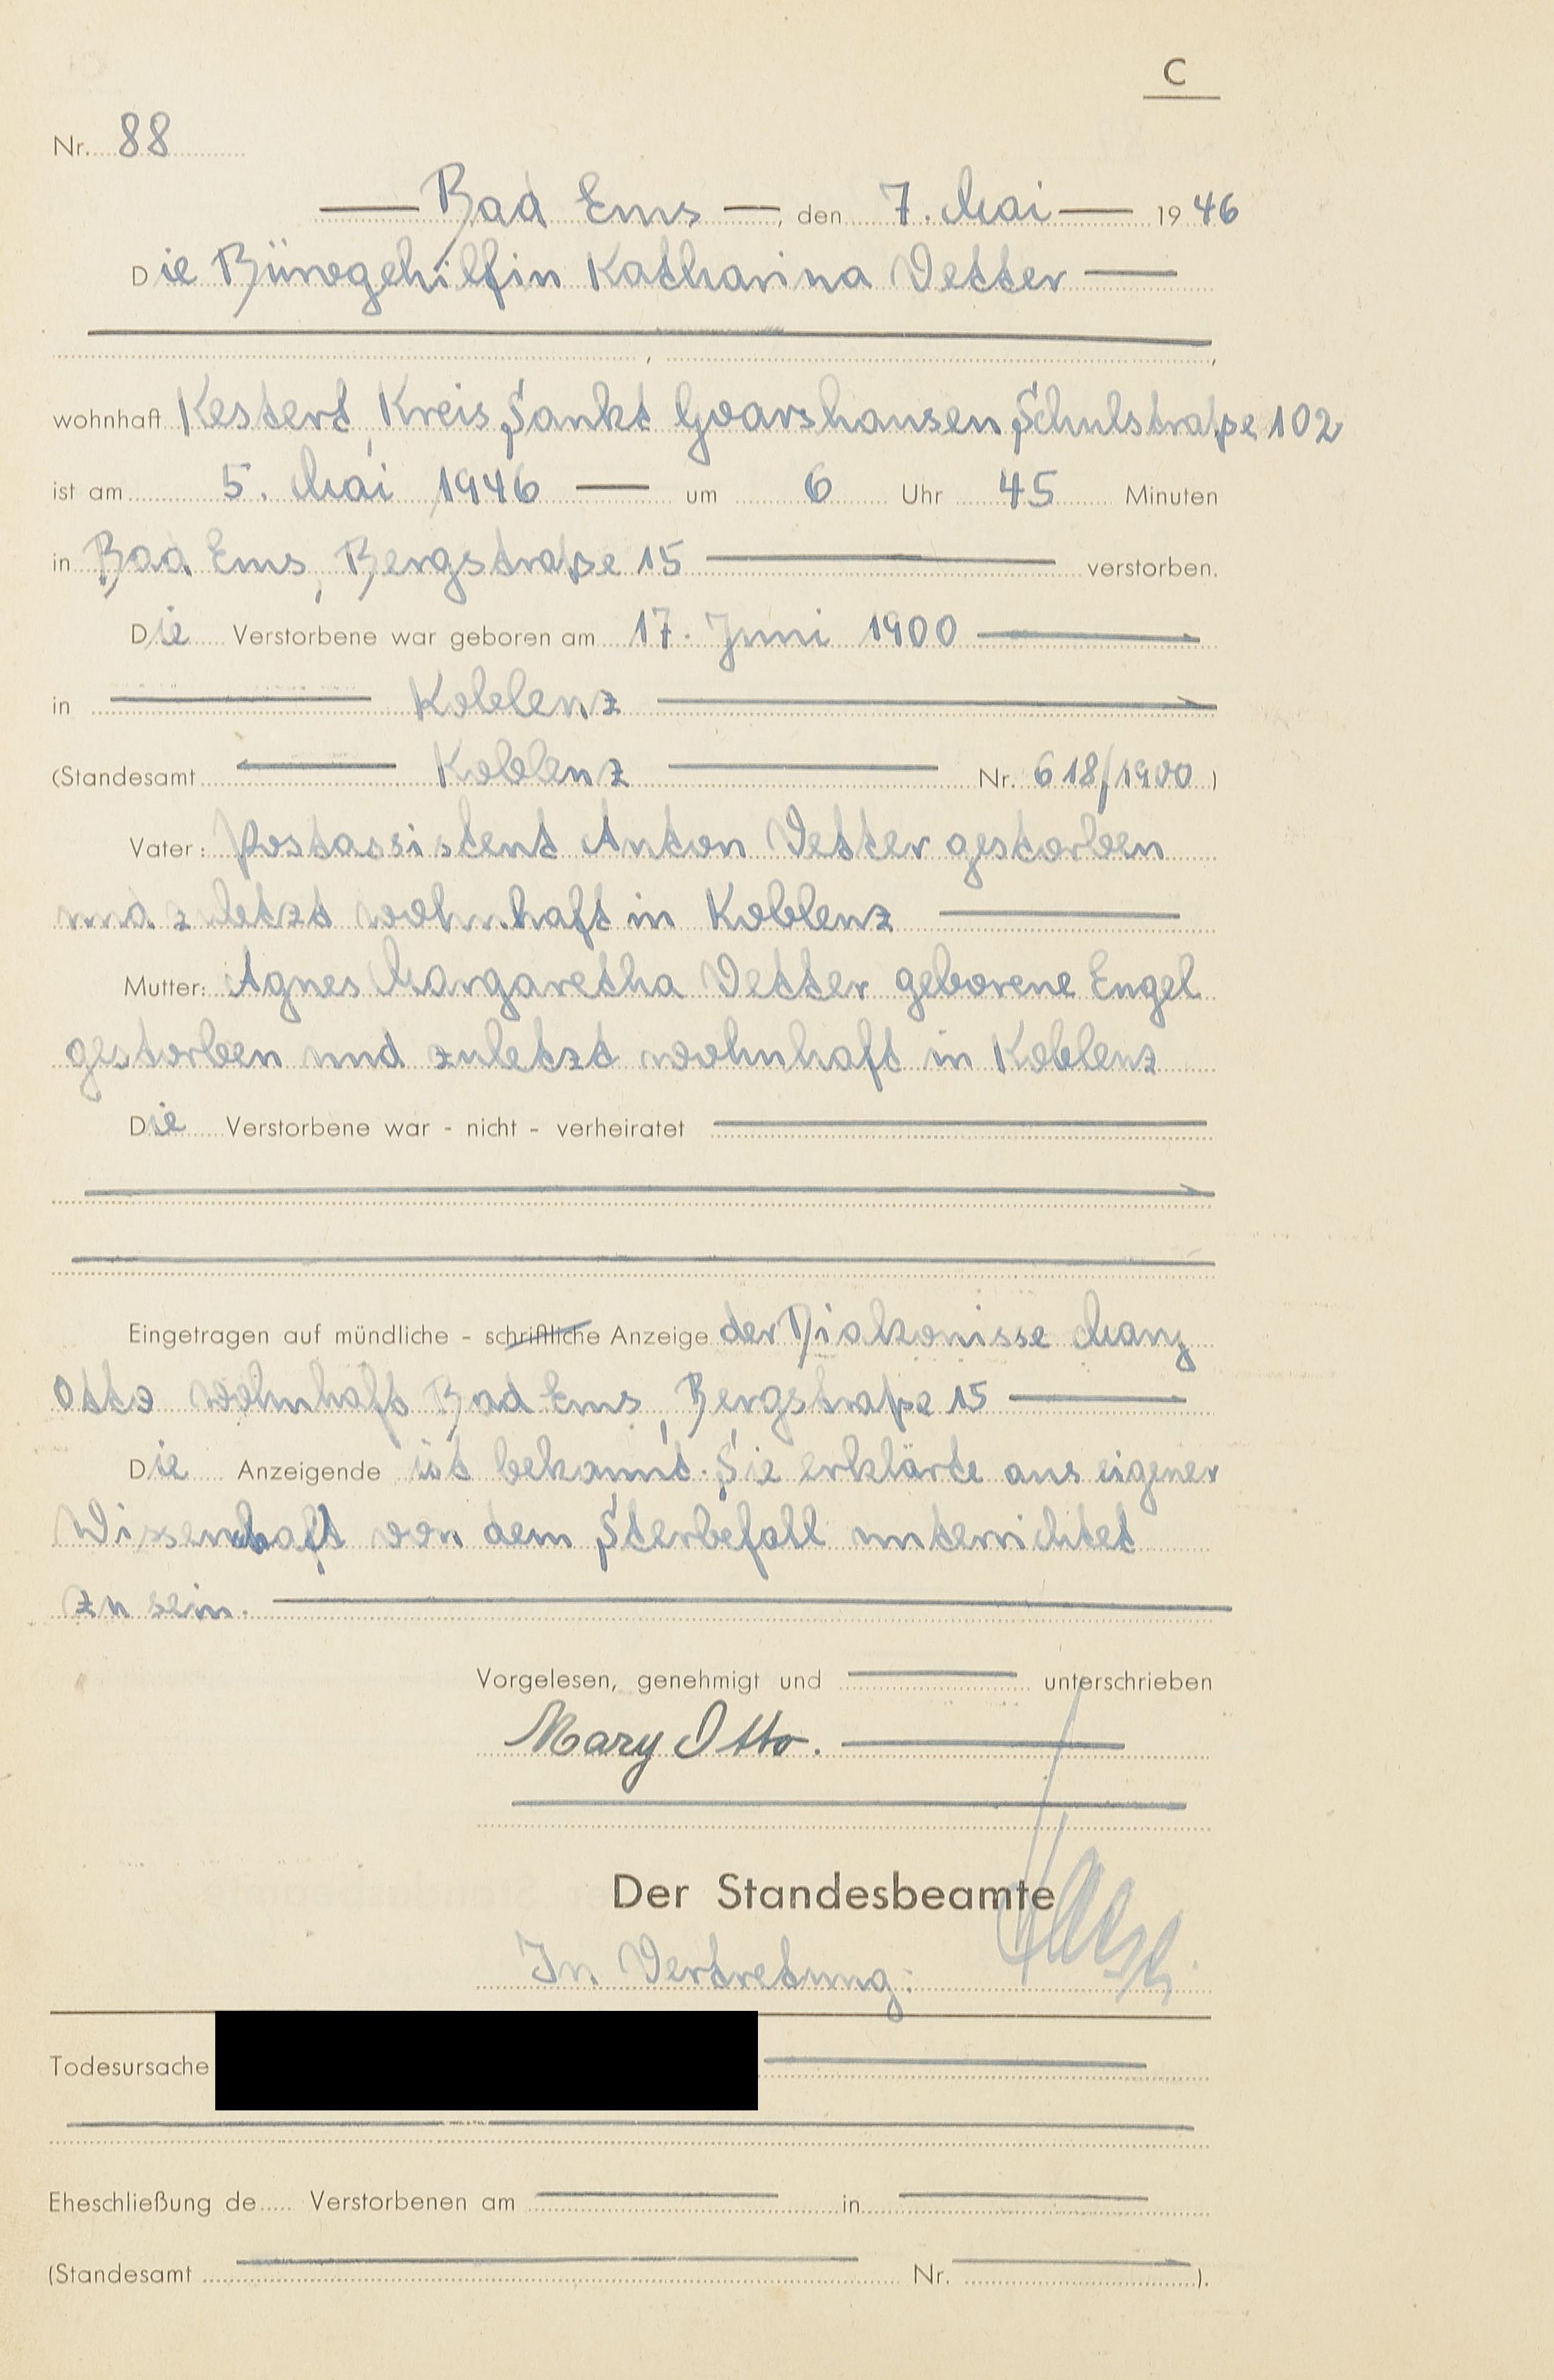 C
Nr. 88
Bad Ems, den 7. Mai 1946
Die Bürogehilfin Katharina Vetter
wohnhaft Kestert, Kreis Sankt Goarshausen Schulstraße 102
ist am 5. Mai 1946 um 6 Uhr 45 Minuten
in Bad Ems, Bergstraße 15 verstorben.
Die Verstorbene war geboren am 17. Juni 1900
in Koblenz
(Standesamt Koblenz Nr. 618/1900)
Vater: Postassistent Anton Vetter gestorben
und zuletzt wohnhaft in Koblenz
Mutter: Agnes Margaretha Vetter geborene Engel
gestorben und zuletzt wohnhaft in Koblenz
Die Verstorbene war - nicht - verheiratet
Eingetragen auf mündliche - schriftliche Anzeige der Diakonisse Mary
Otto wohnhaft Bad Ems, Bergstraße 15
Die Anzeigende ist bekannt. Sie erklärte aus eigener
Wissenschaft von dem Sterbefall unterrichtet
zu sein.
Vorgelesen, genehmigt und unterschrieben
Mary Otto.
Der Standesbeamte
In Vertretung:
Todesursache
Eheschließung de Verstorbenen am in
(Standesamt Nr. ).